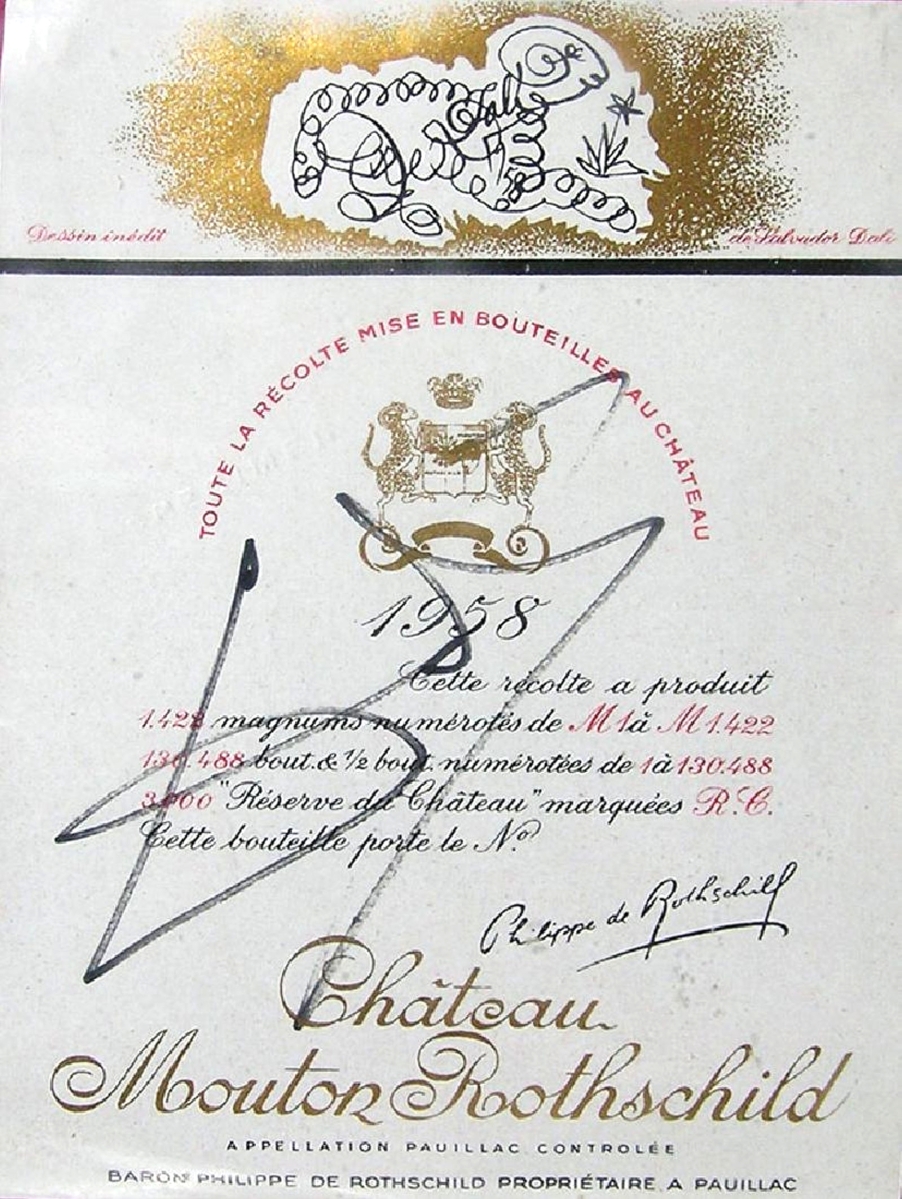 Dali
1958
Dessin inédit
de Salvador Dali
TOUTE LA RÉCOLTE MISE EN BOUTEILLES AU CHÂTEAU
1958
Cette récolte a produit
1.422 magnums numérotés de M 1 à M 1.422
130.488 bout. & ½ bout. numérotées de 1 à 130.488
3.000 "Réserve du Château" marquées R.C.
Cette bouteille porte le No.
Philippe de Rothschild
Château
Mouton Rothschild
APPELLATION PAUILLAC CONTROLÉE
BARON PHILIPPE DE ROTHSCHILD PROPRIÉTAIRE A PAUILLAC